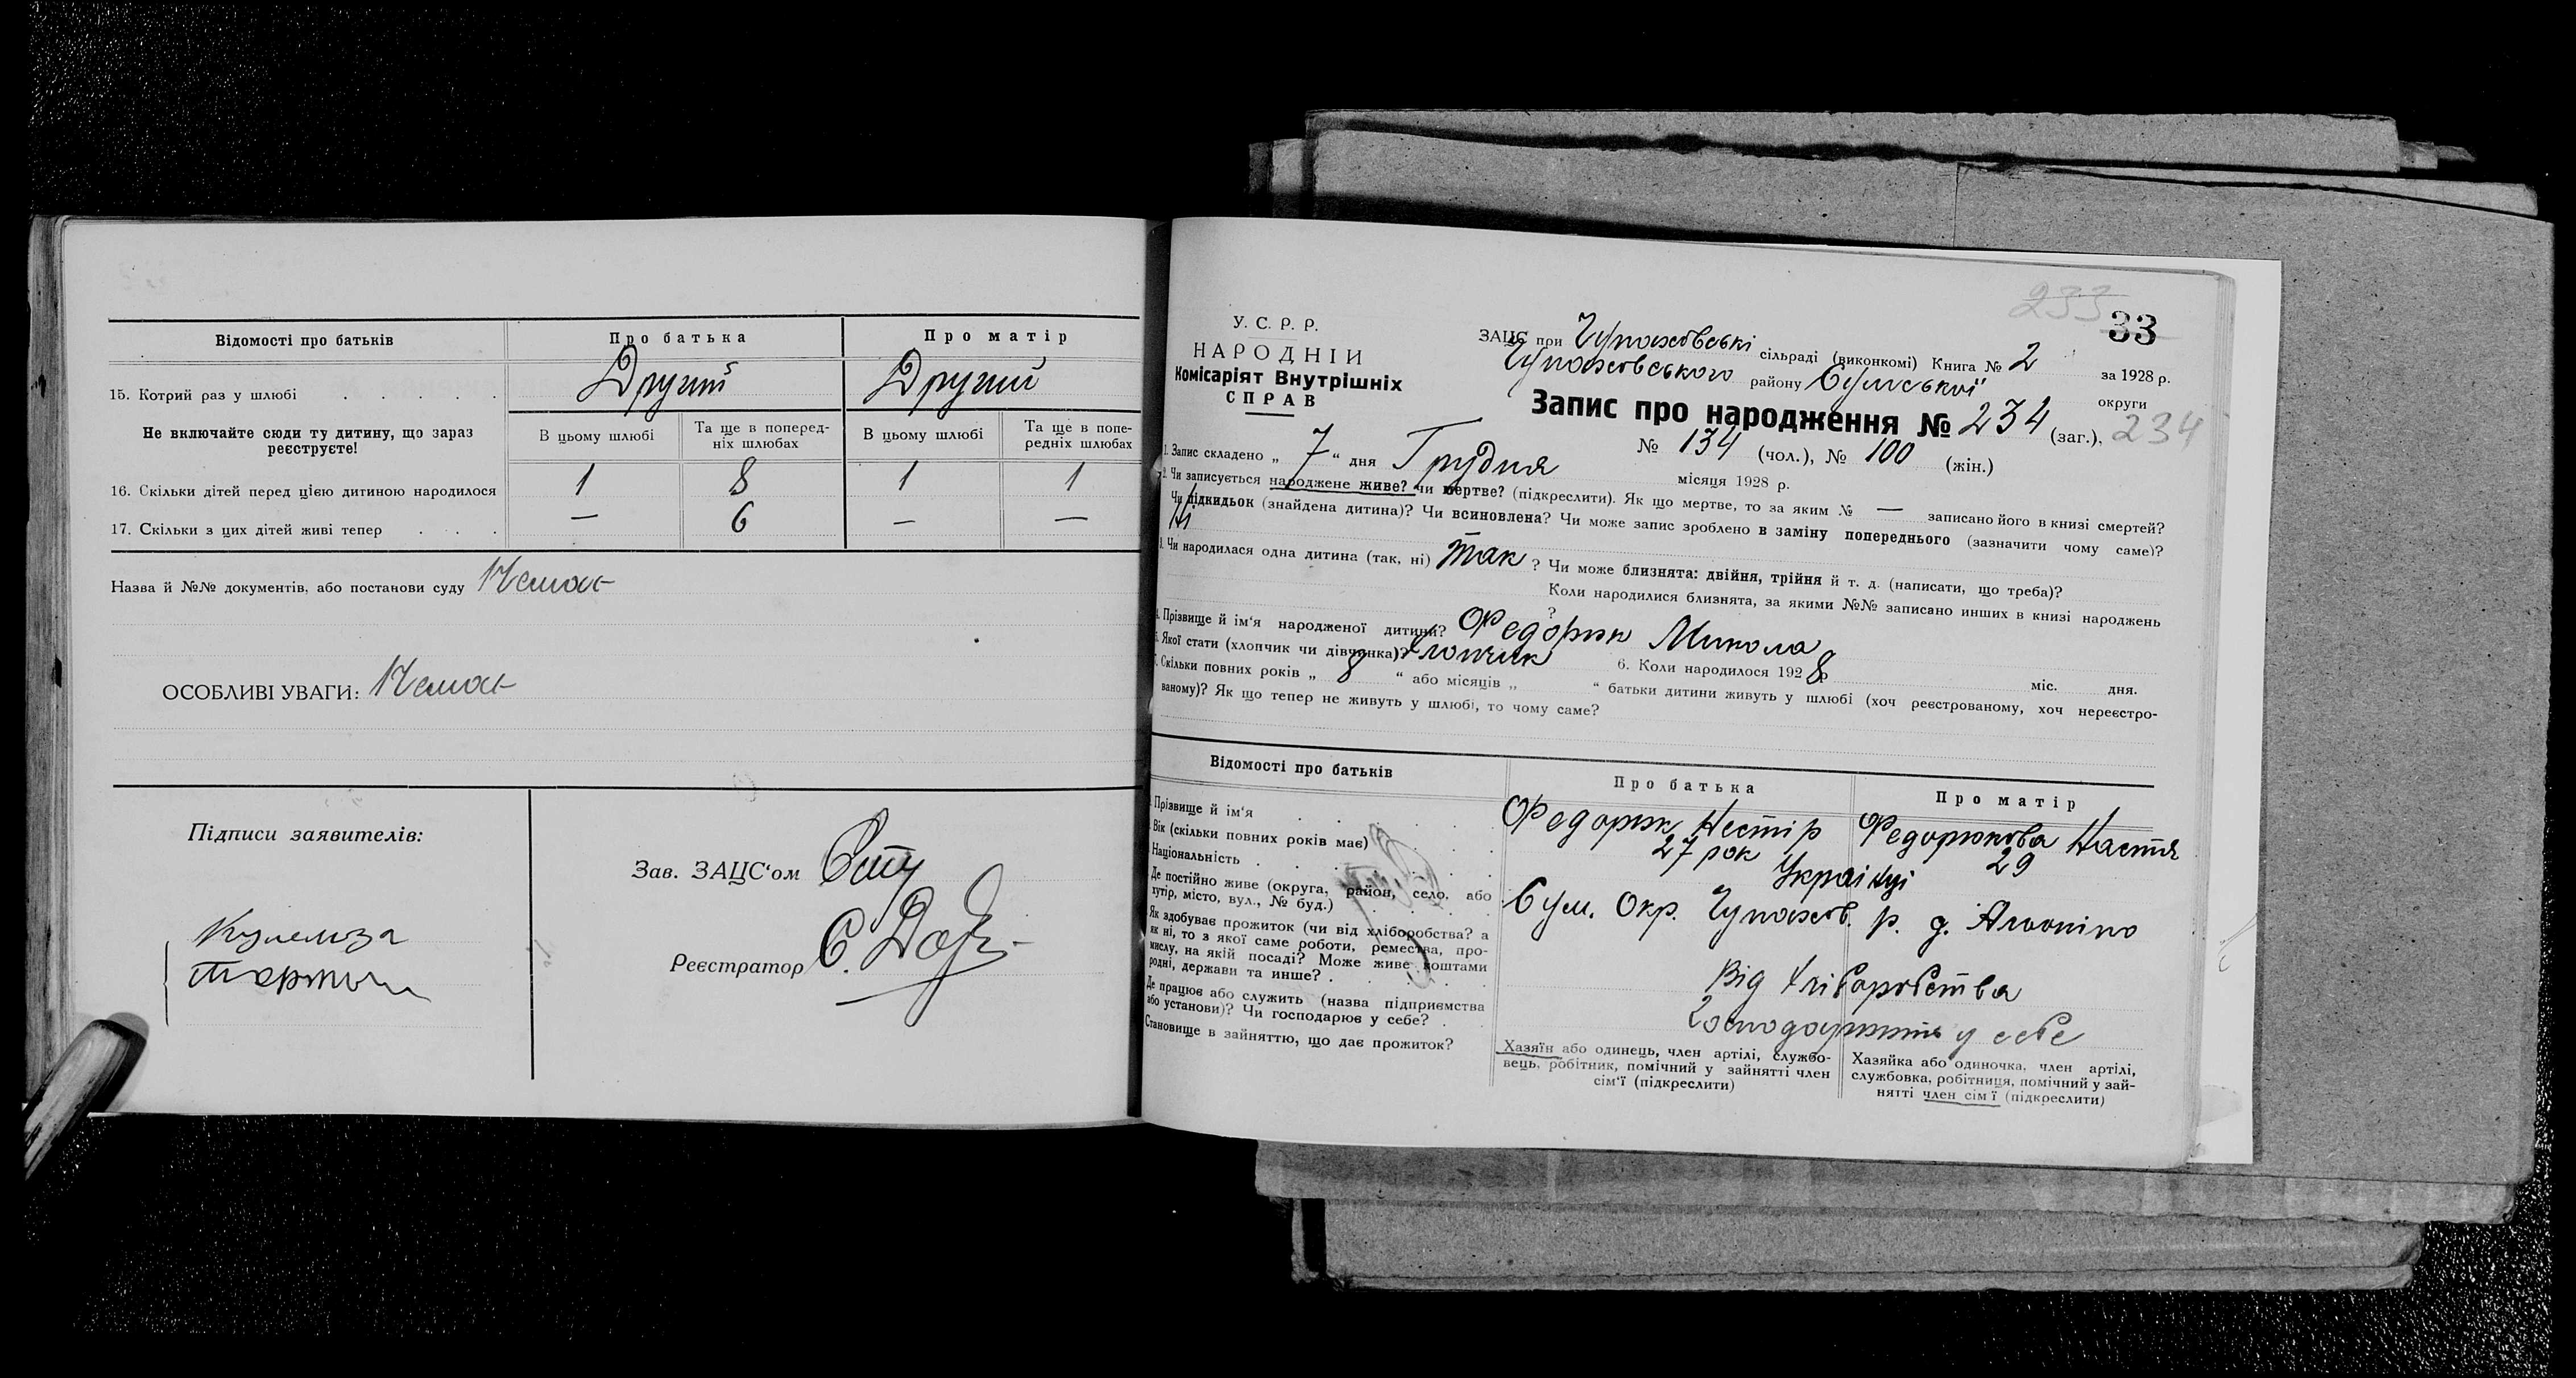 Відомості про батьків
Про батька
Про матір
15. Котрий раз у шлюбі . . . . .
Другий
Другий
Не включайте сюди ту дитину, що зараз реєструєте!
В цьому шлюбі
Та ще в попередніх шлюбах
В цьому шлюбі
Та ще в попередніх шлюбах
16. Скільки дітей перед цією дитиною народилося 1 8 1 1
17. Скільки з цих дітей живі тепер . . . — 6 — —
Назва й №№ документів, або постанови суду Немає
ОСОБЛИВІ УВАГИ: Немає
Підписи заявителів:
Зав. ЗАЦС‘ом
Реєстратор
233
33
У. С. Р. Р.
НАРОДНІЙ
Комісаріят Внутрішніх
СПРАВ
ЗАЦС при Чупахівські сільраді (виконкомі) Книга № 2 за 1928 р.
Чупахівського району Сумської округи
Запис про народження № 234 (заг.), 234
№ 134 (чол.), № 100 (жін.)
1. Запис складено „ 7 “ дня Грудня місяця 1928 р.
2. Чи записується народжене живе? чи мертве? (підкреслити). Як що мертве, то за яким № — записано його в книзі смертей?
Чи підкидьок (знайдена дитина)? Чи всиновлена? Чи може запис зроблено в заміну попереднього (зазначити чому саме)?
Ні
3. Чи народилася одна дитина (так, ні) так ? Чи може близнята: двійня, трійня й т. д. (написати, що треба)?
Коли народилися близнята, за якими №№ записано инших в книзі народжень
?
4. Прізвище й ім‘я народженої дитини? Федорюк Микола
5. Якої стати (хлопчик чи дівчинка)? Хлопчик 6. Коли народилося 1928 р міс. дня.
7. Скільки повних років „ 8 “ або місяців „ “ батьки дитини живуть у шлюбі (хоч реєстрованому, хоч нереєстро-
ваному)? Як що тепер не живуть у шлюбі, то чому саме?
Відомості про батьків
Про батька
Про матір
Прізвище й ім‘я . . . . .
Федорюк Нестір
Федорюкова Настя
Вік (скільки повних років має) . . .
27 рок
29
Національність . . . . .
Українці
Де постійно живе (округа, район, село, або
хутір, місто, вул., № буд.) . . . .
Сум. Окр. Чупахов. р.
Як здобуває прожиток (чи від хліборобства? а
як ні, то з якої саме роботи, ремества, про-
мислу, на якій посаді? Може живе коштами
родні, держави та инше? . . . .
Від хліборобства
Де працює або служить (назва підприємства
або установи)? Чи господарює у себе? .
Господарюють у себе
Становище в зайняттю, що дає прожиток?
Хазяїн або одинець, член артілі, службо-
вець, робітник, помічний у зайнятті член
сім‘ї (підкреслити)
Хазяйка або одиночка, член артілі,
службовка, робітниця, помічний у зай-
нятті член сім‘ї (підкреслити)